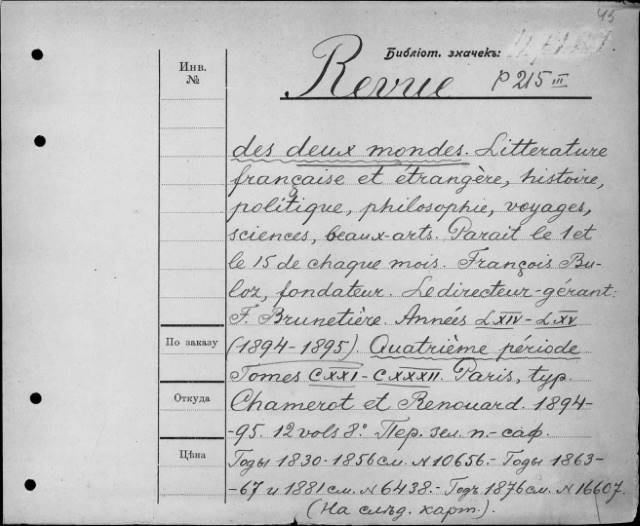 45
Библіот. значекъ:
Инв.
№
Revue
P 215 III
des deux mondes. Litterature
française et étrangère, histoire,
politique, philosophie, voyages,
sciences, beaux-arts. Parait le 1 et
le 15 de chaque mois. François Bu-
loz, fondateur. Le directeur-gérant:
F. Brunetière. Années LXIV-LXV
По заказу
(1894-1895). Quatrième période
Tomes CXXI-CXXXII. Paris, typ.
Откуда
Chamerot et Renouard. 1894-
-95. 12 vols 8°. Пер. зел. п.-саф.
Цѣна
Годы 1830-1856 см. N 10656.- Годы 1863-
-67 и 1881 см. N 6438.- Годъ 1876 см. N 16607.
(На слѣд. карт.).